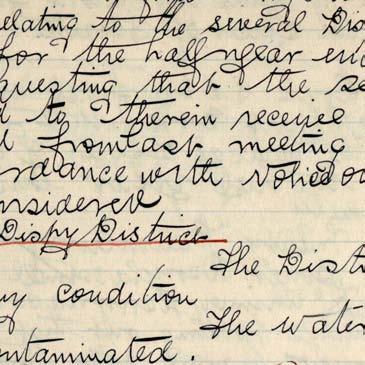 elating to the several Dis
for the half year en
questing that the se
d to therein receive
d from last meeting
rdance with Notice o
onsidered
Dispy District
The Distr
ny condition
The wate
ontaminated.